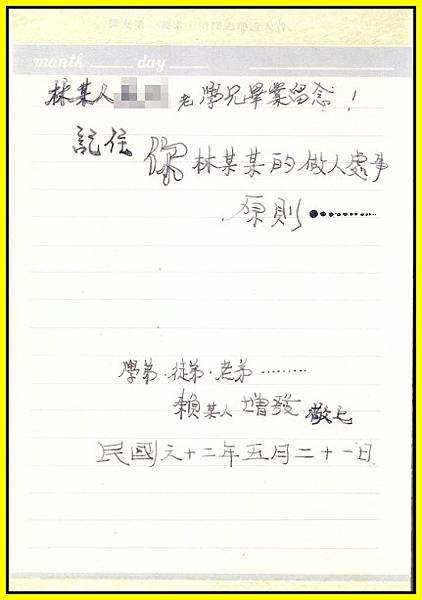 month day
林某人 老學兄畢業留念!
記住 你 林某某的做人處事
原則●………
學弟.徒弟.老弟………
賴某人 增發 敬上
民國六十二年五月二十一日